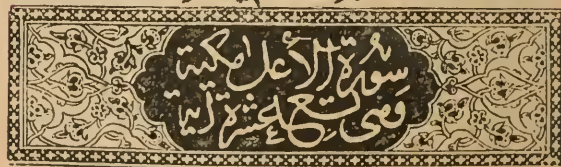 سورة الأعلى مكية
وهي تسع عشرة آية